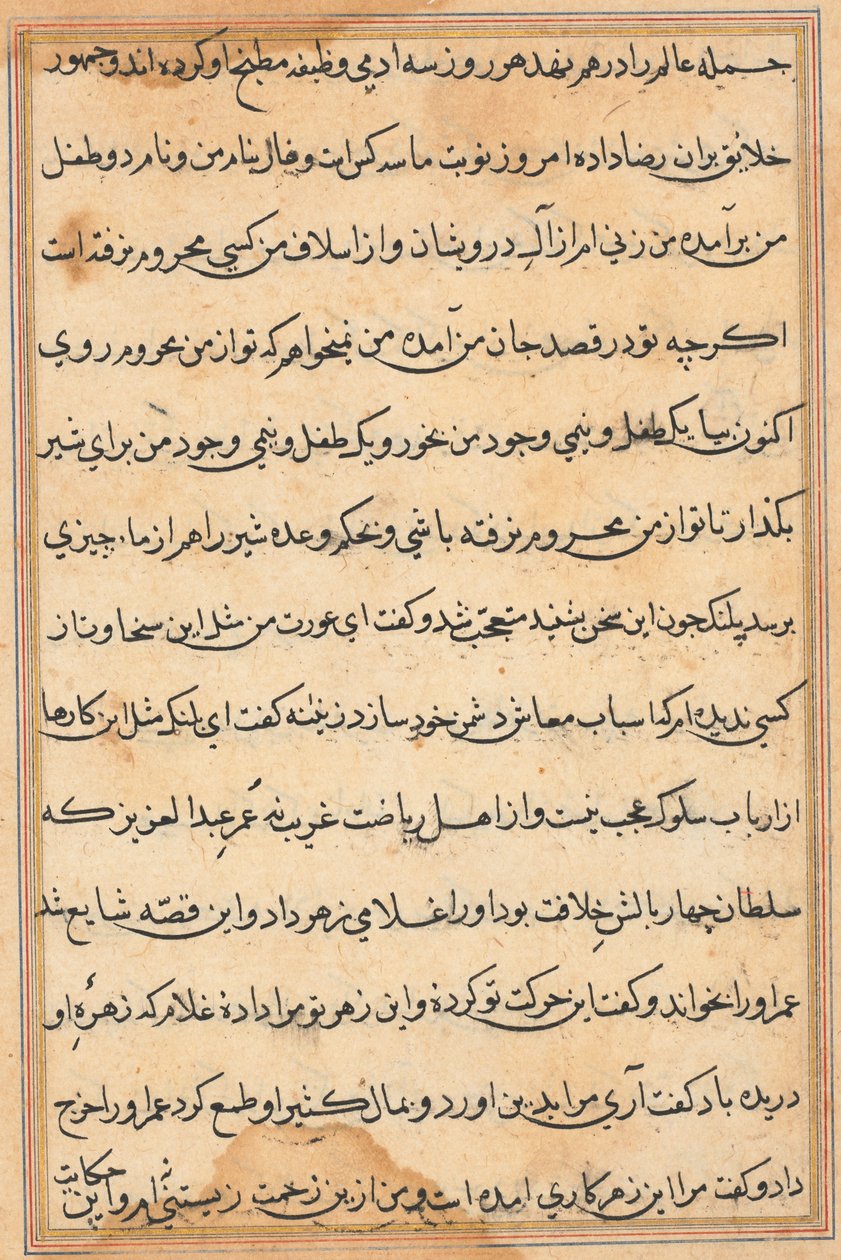 جمله عالم را درهم نهد هر روز سه ادمي وظيفه مطبخ او كرده اند و جمهور
خلائق بران رضا داده امروز نوبت ما سه كس است و فال بنام من و نام دو طفل
من برآمده من زني ام از آلِ درويشان و از اسلاف من كسي محروم نرفته است
اكرچه تو در قصد جان من آمده من نميخواهم كه تو از من محروم روي
اكنون بيا يك طفل و نيمي وجود من بخور و يك طفل و نيمي وجود من براي شير
بكذار تا تو از من محروم نرفته باشي و بحكم وعده شير را هم از ما چيزي
برسد پلنك چون اين سخن بشنيد متعجّب شد و كفت اي عورت من مثل اين سخاوت از
كسي نديده ام كه اسباب معاش دشمن خود سازد زن كفت اي پلنك مثل اين كارها
از ارباب سلوك عجب نيست و از اهل رياضت غريب نه عُمرِ عبدالعزيز كه
سلطان چهار بالشِ خلافت بود او را غلامي زهر داد و اين قصّه شايع شد
عمر او را بخواند و كفت اين حركت تو كردهٔ و اين زهر تو مرا دادهٔ غلام كه زهرهٔ او
دريده باد كفت آري مرا بدين اورد و بمال كثير او طمع كرد عمر او را خرج
داد و كفت مرا اين زهر كاري امده است و من ازين زخمت زيستني نه ام و اين حكايت